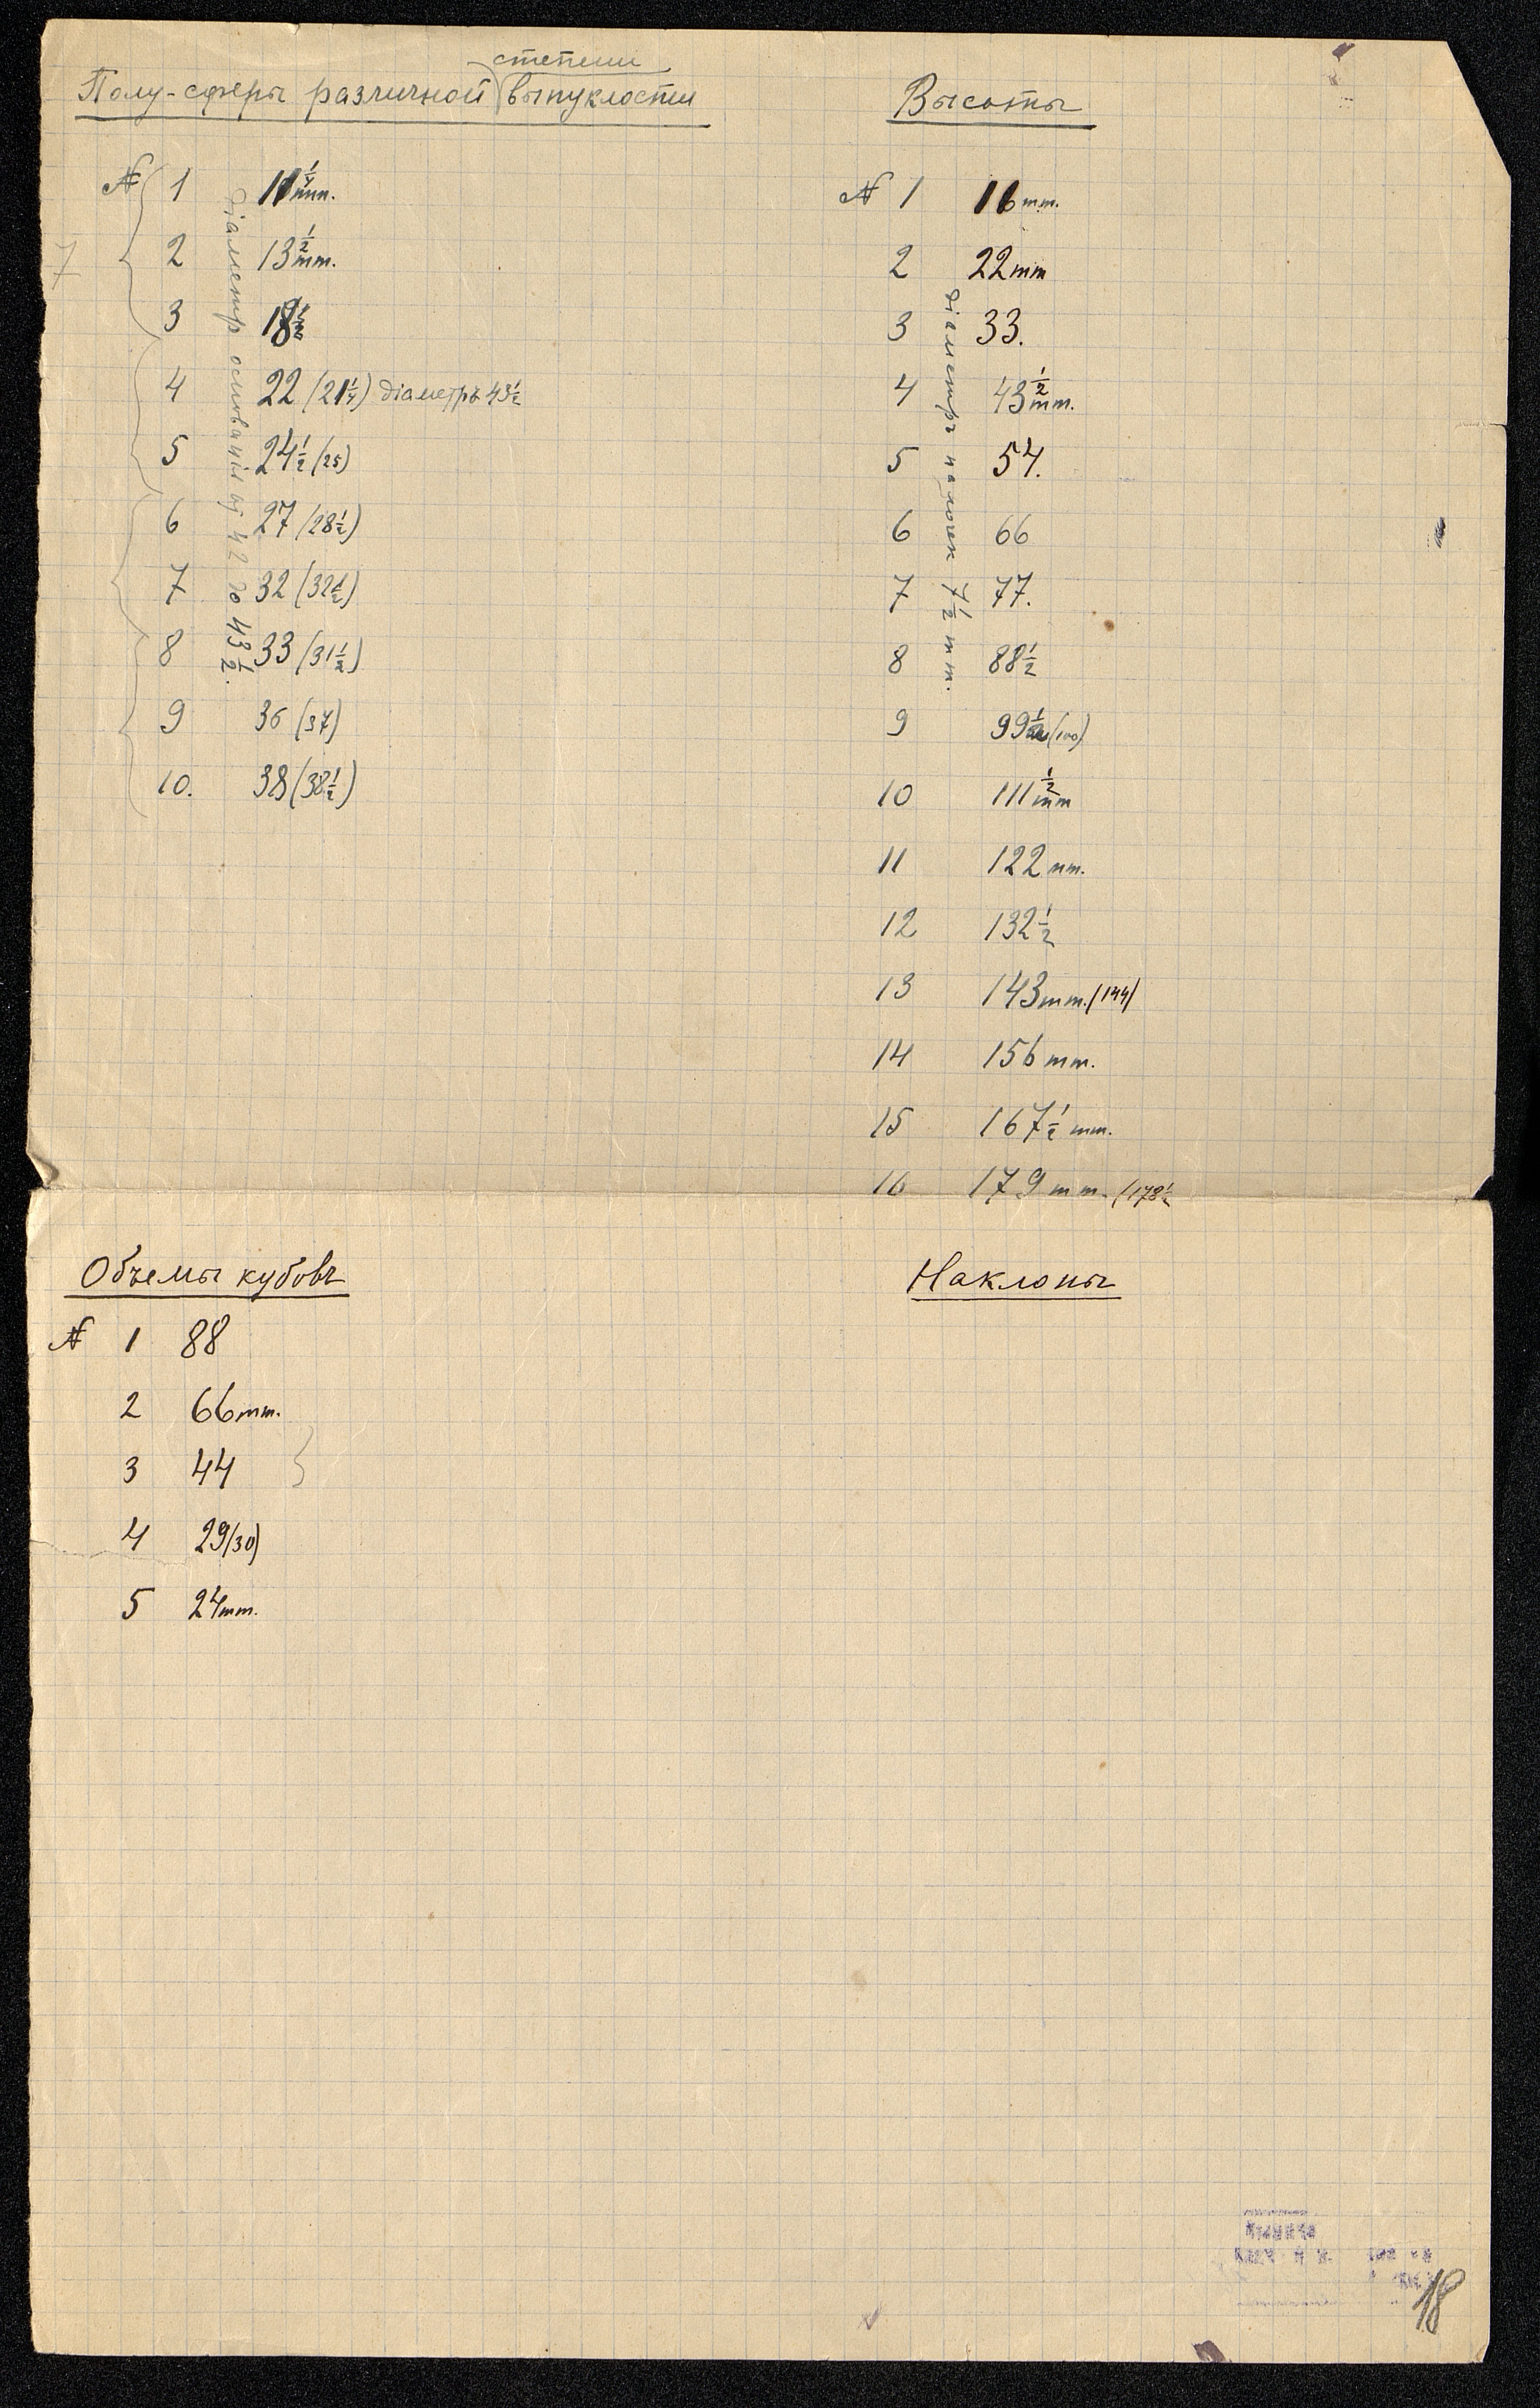 степени
Полу-сферы различной выпуклости
№ 1 11 1/4 mm.
2 13 1/2 mm.
3 18 1/2
4 22 (21 1/4) діаметръ 43 1/2
5 24 1/2 (25)
6 27 (28 1/2)
7 32 (32 1/2)
8 33 (31 1/2)
9 36 (37)
10. 38 (38 1/2)
діаметр основанія 42 до 43 1/2.
7
Высоты
№ 1 16 mm.
2 22 mm
3 33.
4 43 1/2 mm.
5 54.
6 66
7 77.
8 88 1/2
9 99 1/2 (100)
10 111 1/2 mm
11 122 mm.
12 132 1/2
13 143 mm. (144)
14 156 mm.
15 167 1/2 mm.
16 179 mm. (178 1/2
діаметръ палочек 7 1/2 mm.
Объемы кубовъ
№ 1 88
2 66 mm.
3 44
4 29 (30)
5 24 mm.
Наклоны
18